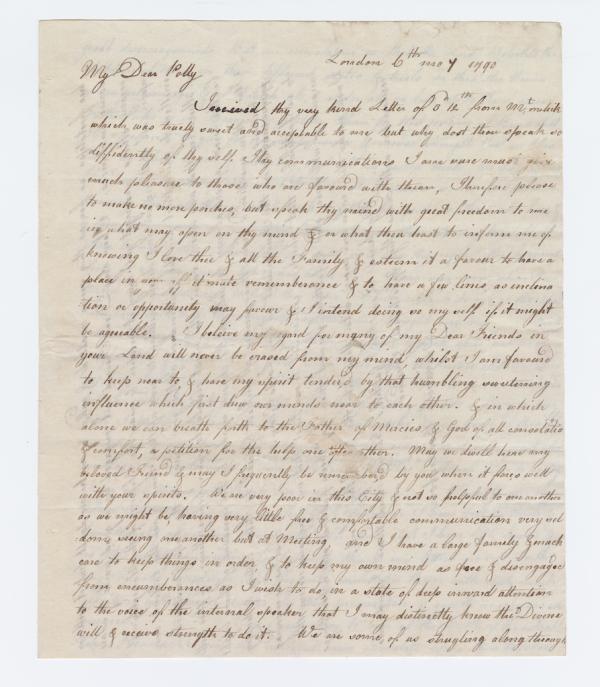 London 6th mo 7 1790
My Dear Polly
I received thy very kind Letter of 12th from
which was truly sweet and acceptable to me but why dost thou speak so
diffidently of thy self. Thy communications I am sure must give
much pleasure to those who are favourd with them, Therefore please
to make no more but speak thy mind with great freedom to me
in what may open on thy mind & or what thou hast to inform me of
knowing I love thee & all the Family & esteem it a favour to have a
place in your affectionate rememberance & to have a few lines as inclina
tion or opportunity may favour & I intend doing so my self if it might
be agreeable. I beleive my regard for many of my Dear Friends in
your Land will never be erased from my mind whilst I am favourd
to keep near to & have my spirit tenderd by that humbling sweetening
influence which first drew our minds near to each other. & in which
alone we can breath forth to the Father of Mercies & God of all consolatio
& comfort, a petition for the help one other. May we dwell here my
beloved Friend & may I frequently be rememberd by you when it fares well
with your spirits. We are very poor in this City & not so helpful to one another
as we might be, having very little free & comfortable communication very sel
dom seeing one another but at Meeting, and I have a large family & much
care to keep things in order & to keep my own mind as free & disengaged
from encumberances as I wish to do, in a state of deep inward attention
to the voice of the internal speaker that I may distinctly know the Divine
will & receive strength to do it. We are some of us strugling along through